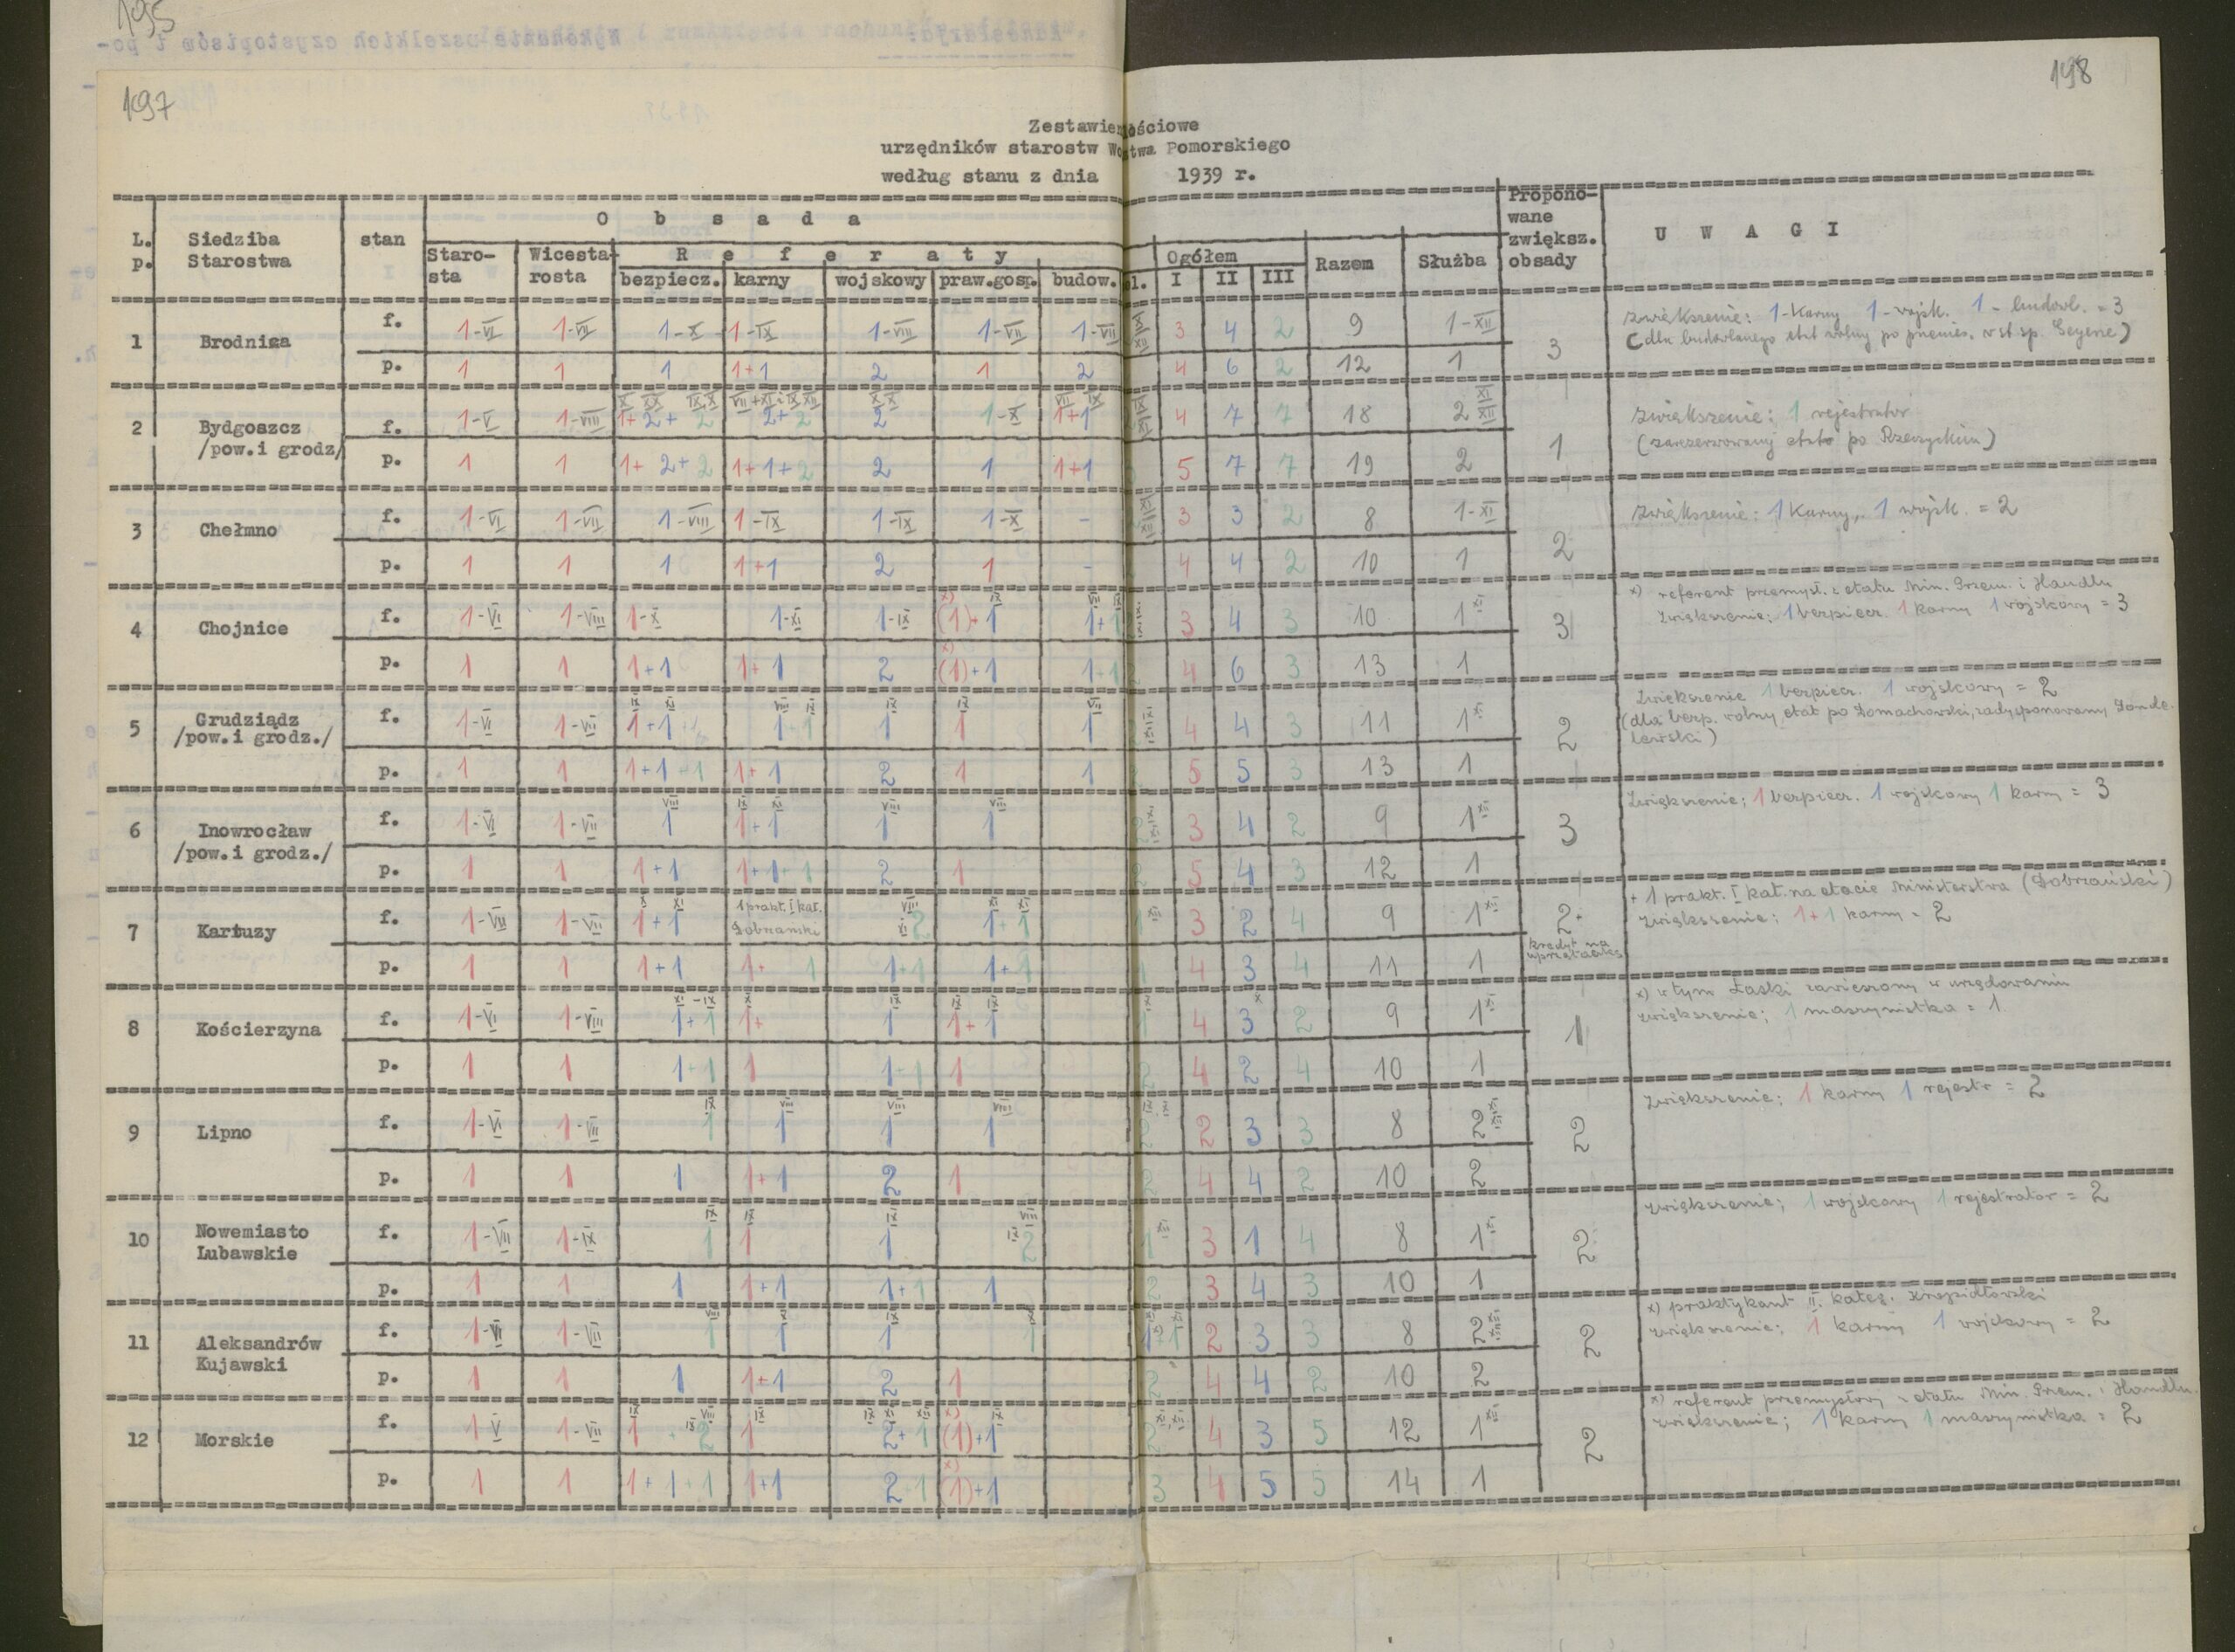 195
197
198
Zestawie ościowe
urzędników starostw Wo twa Pomorskiego
według stanu z dnia 1939 r.
L. p. Siedziba Starostwa stan O b s a d a Propono- wane zwiększ. obsady U W A G I
Staro- sta Wicesta- rosta R e f e r a t y Ogółem Razem Służba
bezpiecz. karny wojskowy praw.gosp. budow. l. I II III
1 Brodnica f. 1-VI 1-VII 1-X 1-IX 1-VIII 1-VII 1-VII 3 4 2 9 1-XII 3 zwiększenie: 1-karny 1-wojsk. 1-budowl. = 3
(dla budowlanego etat wolny po przenies. w st. sp.
p. 1 1 1 1+1 2 1 2 4 6 2 12 1
2 Bydgoszcz /pow.i grodz/ f. 1-V 1-VIII 1+2+2 2+2 2 1-X 1+1 4 7 7 18 2 XI XII 1 zwiększenie: 1 rejestrator
(zarezerwowany etat po
p. 1 1 1+2+2 1+1+2 2 1 1+1 5 7 7 19 2
3 Chełmno f. 1-VI 1-VII 1-VIII 1-IX 1-IX 1-X - 3 3 2 8 1-XI 2 zwiększenie: 1 karny, 1 wojsk. = 2
p. 1 1 1 1+1 2 1 - 4 4 2 10 1
4 Chojnice f. 1-VI 1-VIII 1-X 1-XI 1-IX x) (1)+1 IX 1+1 VII IX 3 4 3 10 1 XI 3 x) referent przemysł. z etatu Min. Przem. i Handlu
zwiększenie: 1 bezpiecz. 1 karny 1 wojskowy = 3
p. 1 1 1+1 1+1 2 x) (1)+1 1+1 2 4 6 3 13 1
5 Grudziądz /pow.i grodz./ f. 1-VI 1-VII 1+1 1+1 1 1 1 4 4 3 11 1 X 2 zwiększenie 1 bezpiecz. 1 wojskowy = 2
(dla bezp. wolny etat po Domachowski, zadysponowany
p. 1 1 1+1+1 1+1 2 1 1 5 5 3 13 1
6 Inowrocław /pow.i grodz./ f. 1-VI 1-VII 1 VIII 1+1 IX XI 1 VIII 1 VIII 2 3 4 2 9 1 XII 3 zwiększenie; 1 bezpiecz. 1 wojskowy 1 karny = 3
p. 1 1 1+1 1+1+1 2 1 2 5 4 3 12 1
7 Kartuzy f. 1-VII 1-VII 1+1 X XI 1 prakt. I kat. Dobrzański VIII XI 2 1+1 XI XI 1 XII 3 2 4 9 1 XI 2+ + 1 prakt. I kat. na etacie Ministerstwa (Dobrzański)
zwiększenie; 1+1 karny = 2
kredyt na
p. 1 1 1+1 1+1 1+1 1+1 1 4 3 4 11 1
8 Kościerzyna f. 1-VI 1-VIII 1+1 XI-IX 1+ X 1 IX 1+1 IX IX 1 X 4 3 x 2 9 1 XI 1 x) w tym Łaski zawieszony w urzędowaniu
zwiększenie; 1 maszynistka = 1
p. 1 1 1+1 1 1+1 1 2 4 2 4 10 1
9 Lipno f. 1-VI 1-VII 1 IX 1 VIII 1 VIII 1 VIII 2 2 3 3 8 2 XI XII 2 zwiększenie; 1 karny 1 rejestr = 2
p. 1 1 1 1+1 2 1 2 4 4 2 10 2
10 Nowemiasto Lubawskie f. 1-VII 1-IX 1 IX 1 IX 1 IX IX 2 VIII 1 XII 3 1 4 8 1 XI 2 zwiększenie; 1 wojskowy 1 rejestrator = 2
p. 1 1 1 1+1 1+1 1 2 3 4 3 10 1
11 Aleksandrów Kujawski f. 1-VII 1-VII 1 VIII 1 X 1 IX 1 X 1+1 2 3 3 8 2 XI XII 2 x) praktykant II. kateg.
zwiększenie; 1 karny 1 wojskowy = 2
p. 1 1 1 1+1 2 1 2 4 4 2 10 2
12 Morskie f. 1 V 1-VII 1 + 2 IX IX VIII 1 IX 2+1 IX XI XII x) (1)+1 IX 2 XI XII 4 3 5 12 1 XII 2 x) referent przemysłowy z etatu Min. Przem. i Handlu
zwiększenie; 1 karny 1 maszynistka = 2
p. 1 1 1+1+1 1+1 2+1 x) (1)+1 3 4 5 5 14 1